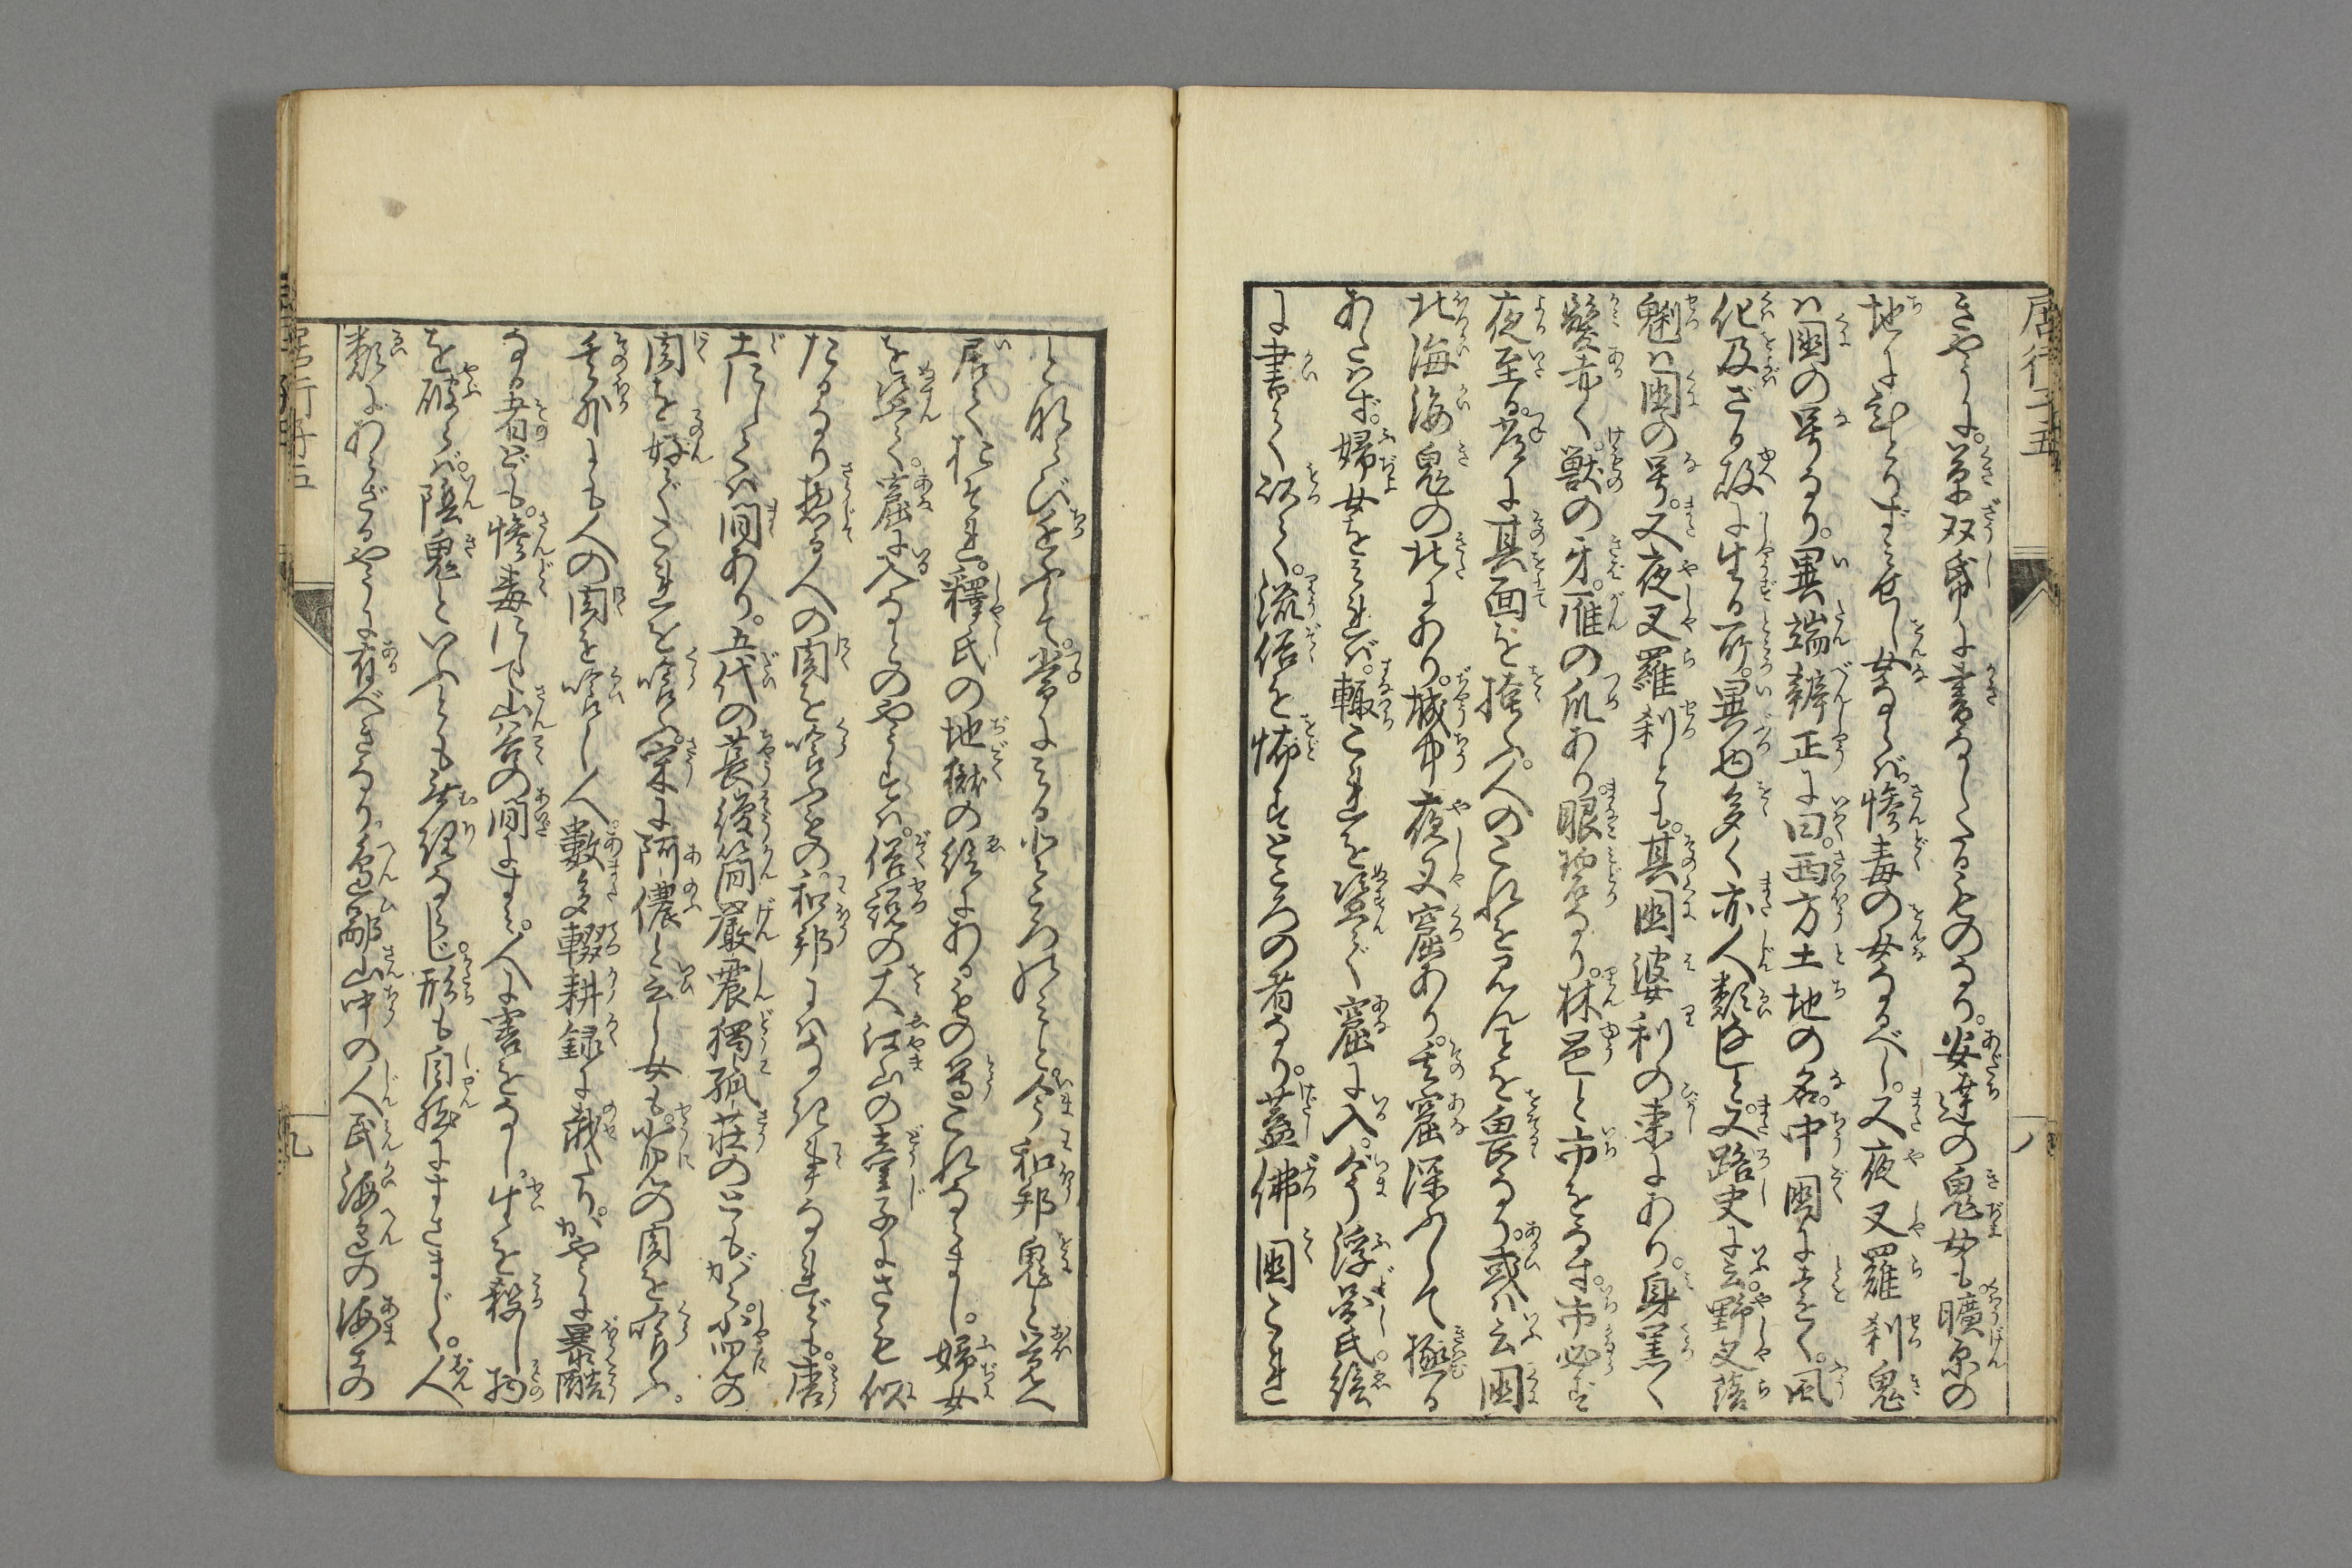 きやうに。草双帋に書なしたるものなり。安達の鬼女も曠原の
地にひとりずみせし女ならば。惨毒の女なるべし。又夜叉羅刹鬼
は國の号なり。異端辨正に曰。西方土地の名。中國に遠く。風
化及ざる故に生る所。異物多く亦人類匕と。又路史に云。野叉落
魁は國の号。又夜叉羅刹とも。其國婆利の東にあり。身黒く
髪赤く。獣の牙。雁の爪あり眼碧なり。林邑と市をなす。市必ず
夜至る。昼は其面を掩ふ。人のこれを見んことを畏るゝなり。或は云國
北海海鬼の北にあり。城中夜叉窟あり。其窟深ふして極る
あたはず。婦女をみれば。輙これを盗て窟に入。今浮圖氏繪
に書て以て。流俗を怖すところの者なり。蓋佛國これ
と雑り近ければ。常にみる小ところなりと。今和邦鬼と覚へ
居てかきそれ。釋氏の地獄の絵にあるもの等これなるまし。婦女
を盗て。窟に入るゝのやうすは。俗説の大江山の童子にさも似
たるなり惣る人の肉を喰ふもの。和邦にはなき事なれども。唐
土にしては間あり。五代の萇從簡嚴震獨孤荘のともがら。小児の
肉を好でこれを喰ふ。宋に阿儂と云し女も。小児の肉を喰ふ。
其外にも人の肉を喰し人。數多輟耕録に載たり。かやうに暴酷
なる者ども。惨毒にして山谷の間にすみ。人に害をなし。生を殺し物
を破らば。陰鬼といふとも無理ならじ。形も自然にすさまじく。人
類にあらざるやうに有べきなり。邊鄙山中の人民海邊の海士の
居行子五
八
九